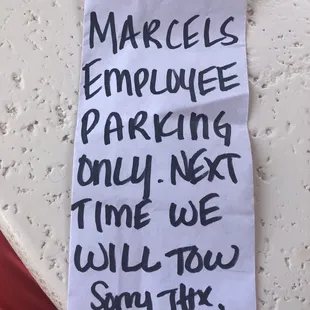 MARCELS
EMPLOYEE
PARKING
ONLY. NEXT
TIME WE
WILL TOW
Sorry THX.